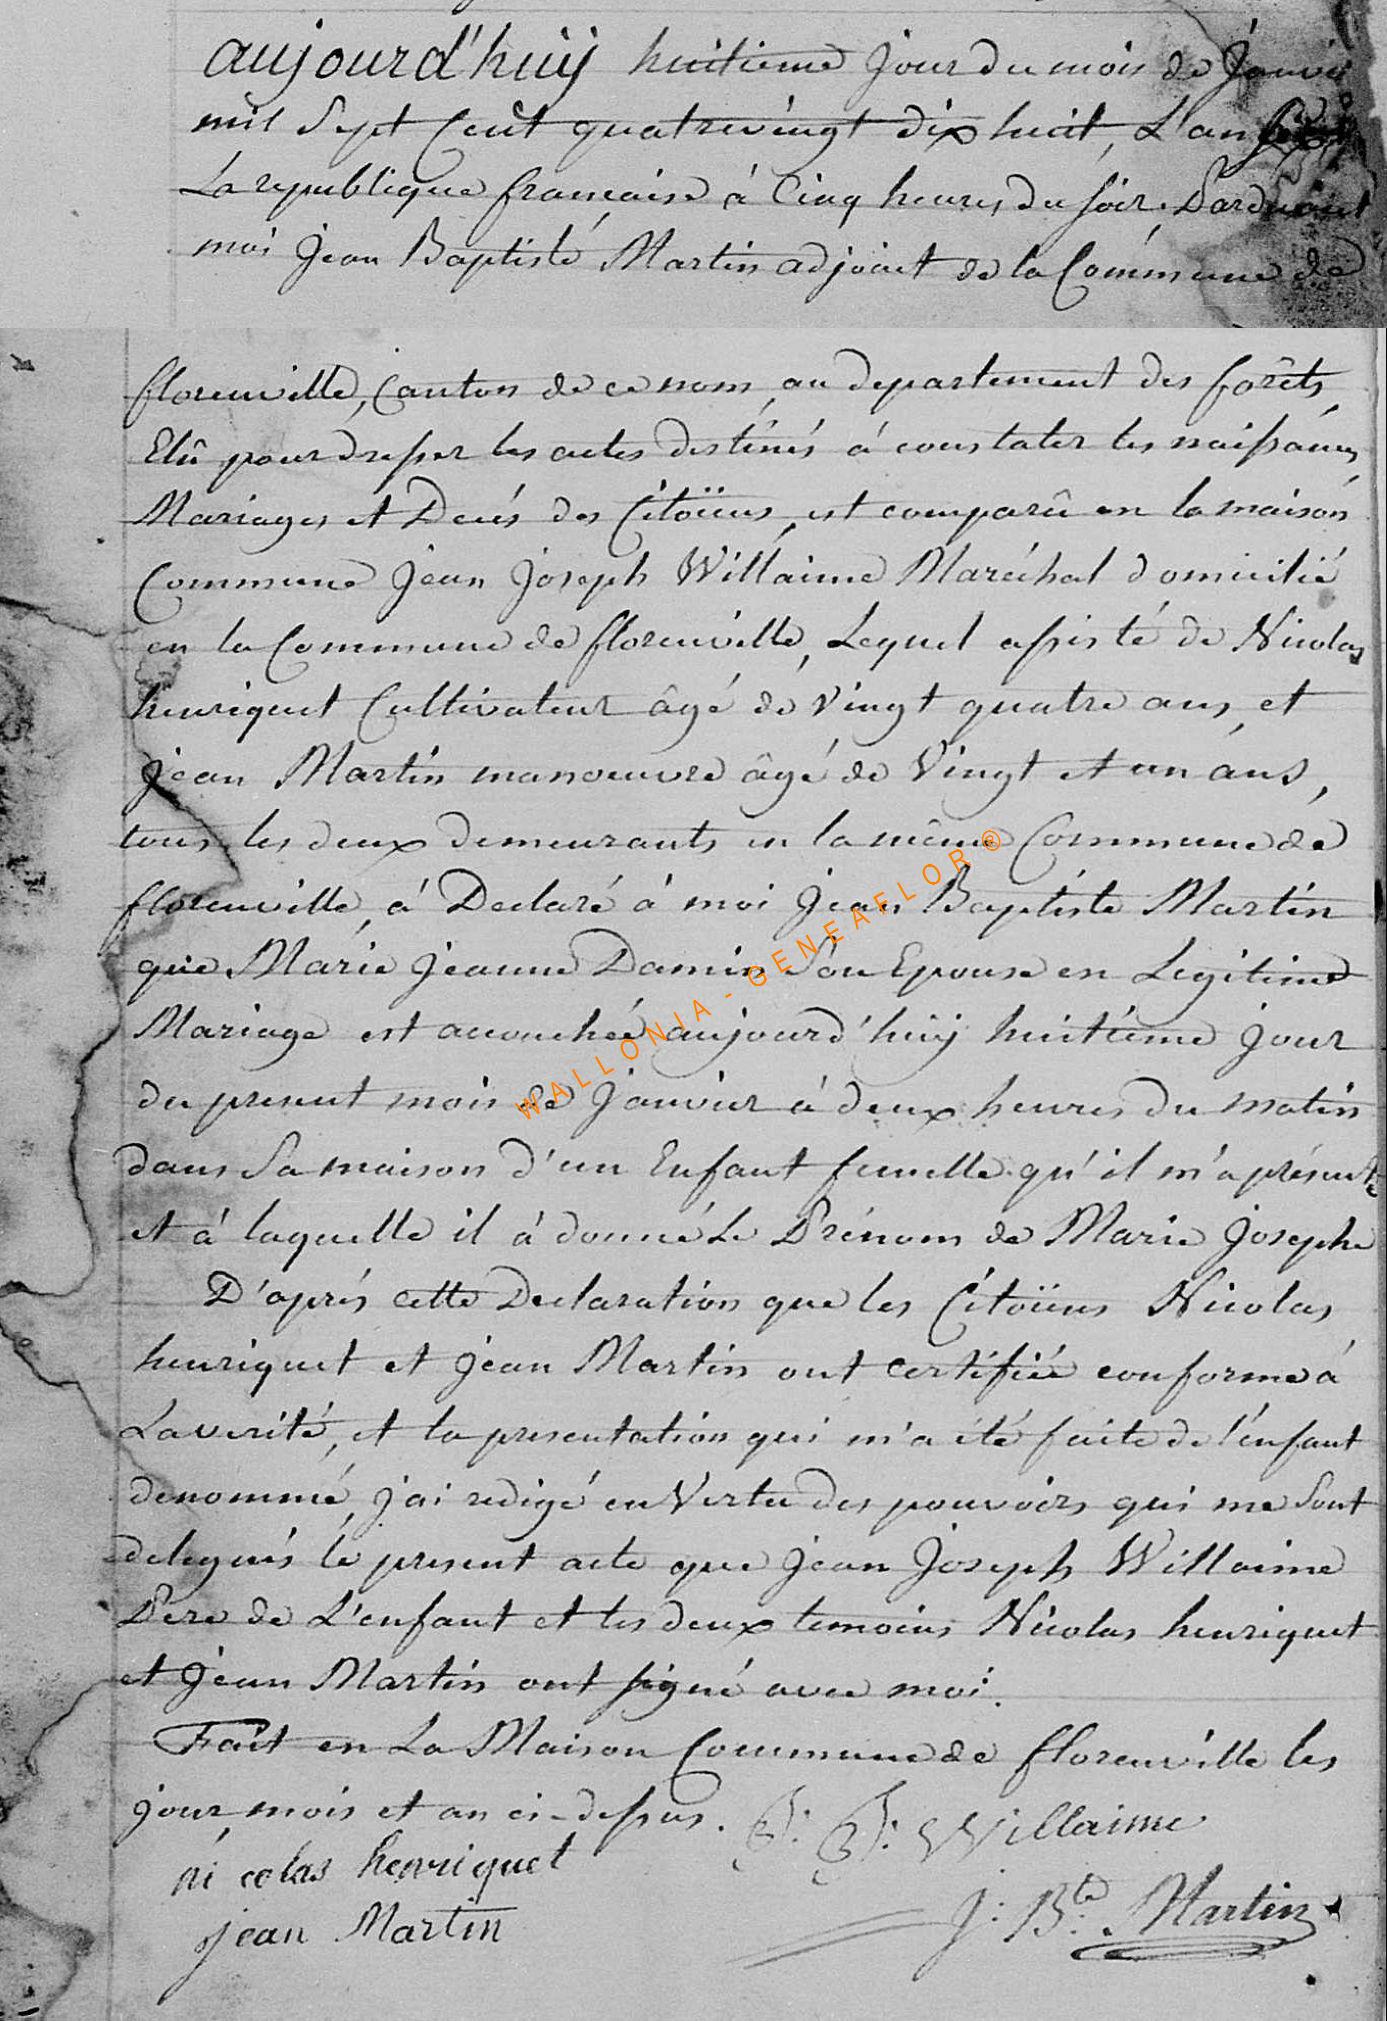 aujourd'huÿ huitieme jour du mois de Janvier
mil Sept Cent quatrevingt dix huit, L'an
La republique francaise à Cinq heures du soir. Pardevant
moi Jean Baptiste Martin adjoint de la Commune de
florenville, Canton de ce nom, au departement des forêts,
Elû pour dresser les actes destinés à constater les naissances,
Mariages et Decés des Citoïens, est comparû en la maison
Commune Jean Joseph Willaime Maréchal domicilié
en la Commune de florenville, Lequel assisté de Nicolas
henriquet Cultivateur âgé de Vingt quatre ans, et
Jean Martin manoeuvre âgé de Vingt et un ans,
tous les deux demeurants en la même Commune de
florenville, à Declaré à moi Jean Baptiste Martin
que Marie Jeanne Damin Son Epouse en Legitime
Mariage est accouchée aujourd'huÿ huitieme jour
du present mois de Janvier à deux heures du matin
dans Sa maison d'un Enfant femelle qu'il m'a présenté
et à laquelle il à donné Le Prénom de Marie Josephe
D'aprés cette Declaration que les Citoïens Nicolas
henriquet et Jean Martin ont certifiée conforme à
La verité, et la presentation qui m'a été faite de l'énfant
denommé, j'ai redigé en Vertu des pouvoirs qui me Sont
delegués le present acte que Jean Joseph Willaime
Pere de L'enfant et les deux temoins Nicolas henriquet
et Jean Martin ont signé avec moi.
Fait en La Maison Commune de florenville les
jour, mois et an ci-dessus. J: J: Willaime
nicolas henriquet
jean Martin
J: B.te Martin
WALLONIA - GENEAFLOR ®